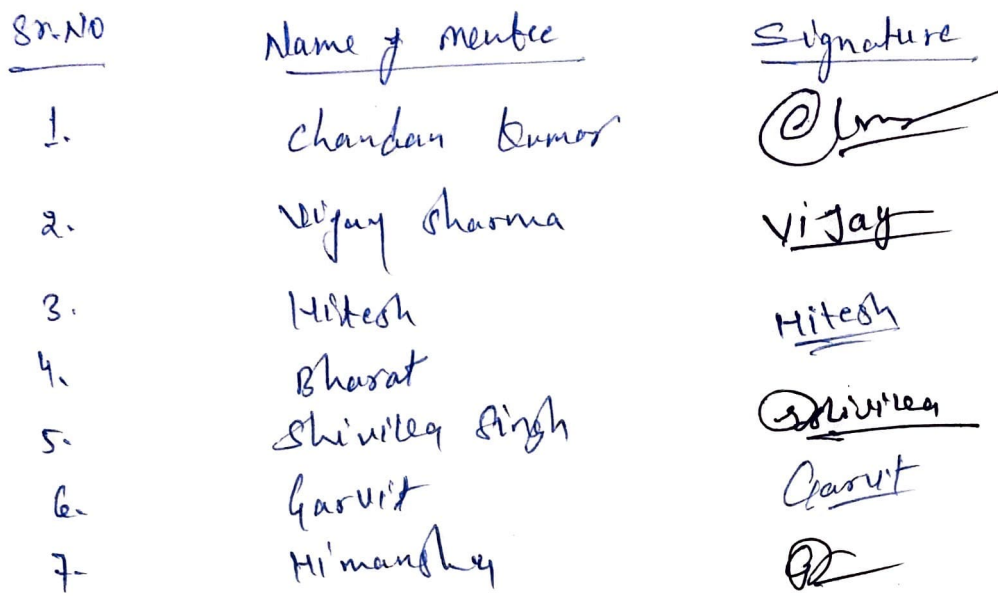 Sr.No Name of mentee Signature
1. Chandan Kumar
2. Vijay Sharma Vijay
3. Hitesh Hitesh
4. Bharat
5. Shivika Singh Shivika
6. Garvit Garvit
7. Himanshu